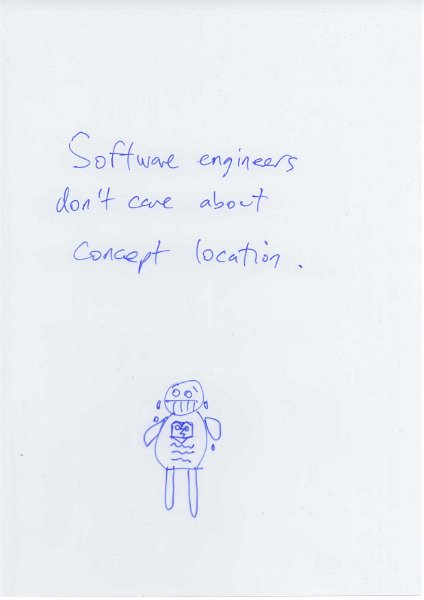 Software engineers
don't care about
concept location.